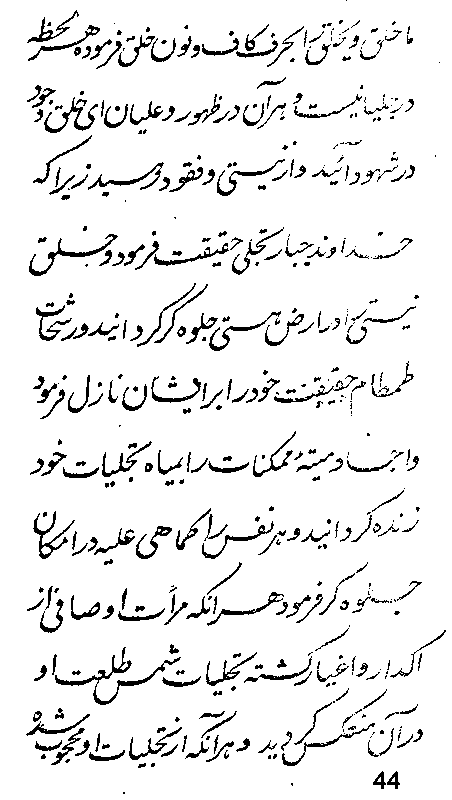 ما خلق و یخلق را بحرف کاف و نون خلق فرموده هر لحظه
در تجلیانیست و هر آن در ظهور و علیان ای خلق وجود
در شهود آئید و از نیستی و فقود رسید زیرا که
خداوند جبار تجلی حقیقت فرمود و خلق
نیستی را در ارض هستی جلوه گر گردانید و رشحات
طمطام حقیقت خود را بر ایشان نازل فرمود
و اجساد میتهٔ ممکنات را بمیاه تجلیات خود
زنده گردانید و هر نفس را کما هی علیه در امکان
جلوه گر فرمود هر انکه مرآت او صافی از
اکدار و اغیار گشته تجلیات شمس طلعت او
در آن منعکس گردید و هر آنکه از تجلیات او محجوب شده
44